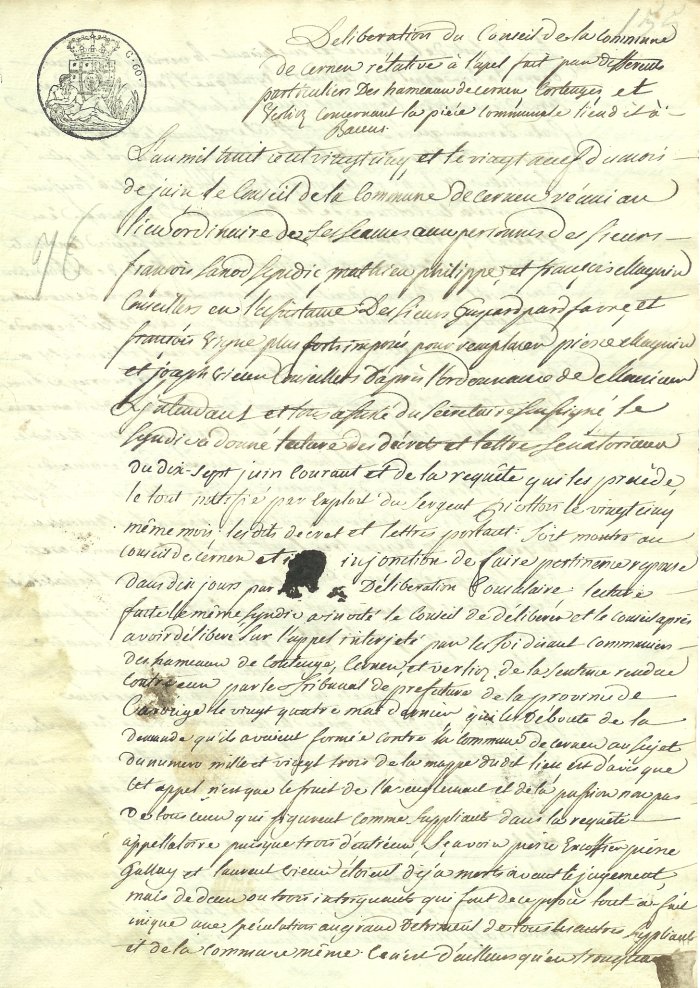 Deliberation du Conseil de la Commune
de cernex rélative à l'apel fait par differents
particuliers Des hameaux de cernex Cortenges et
Verlioz concernant la pièce communale lieu dit à
C. 60.
L'an mil huit cent vingt cinq et le vingt neuf du mois
de juin le Conseil de la Commune de cernex réuni au
lieu ordinaire de ses seances aux personnes des sieurs
76
françois sindic mathieu philippe et françois Magnin
Conseillers en l'assistance Des sieurs Gaspard favre et
françois vigne plus forts imposés pour remplacer pierre Magnin
et joseph vieux Conseillers d'après l'ordonnance de Monsieur
l'jntendant et tous assisté du secretaire soussigné le
syndic a donné lecture des décret et lettre senatoriaux
du dix-sept juin Courant et de la requête qui les précède
le tout notifié par Exploit du sergent le vingt cinq
même mois les dits décret et lettres portant soit montré au
Conseil de cernex et injonction de faire pertinente reponse
Dans dix jours par Déliberation Consulaire lecture
faite le même syndic a invité le Conseil de déliberer et le conseil après
avoir déliberé sur l'appel interjeté par les soi disant Communiers
des hameaux de Cortenge, Cernex et verlioz de la sentence rendue
Contre eux par le tribunal de préfecture de la province de
Carouge le vingt quatre mai dernier qui les Déboute de la
demande qu'ils avoient formée contre la commune de cernex au sujet
du numero mille et vingt trois de la mappe du dit lieu est d'avis que
Cet appel n'est que le fruit de l'aveuglement et de la passion non pas
De tous ceux qui figurent comme suppliants dans la requête
appellatoire puisque trois d'entr'eux, savoir pierre pierre
Gallay et laurent vieux étoient déjà morts avant le jugement,
mais de deux ou trois intriguants qui font de ce procès tout à fait
inique une spéculation au grand Detriment de tous les autres suppliants
et de la commune même. Ce n'est d'ailleurs qu'en